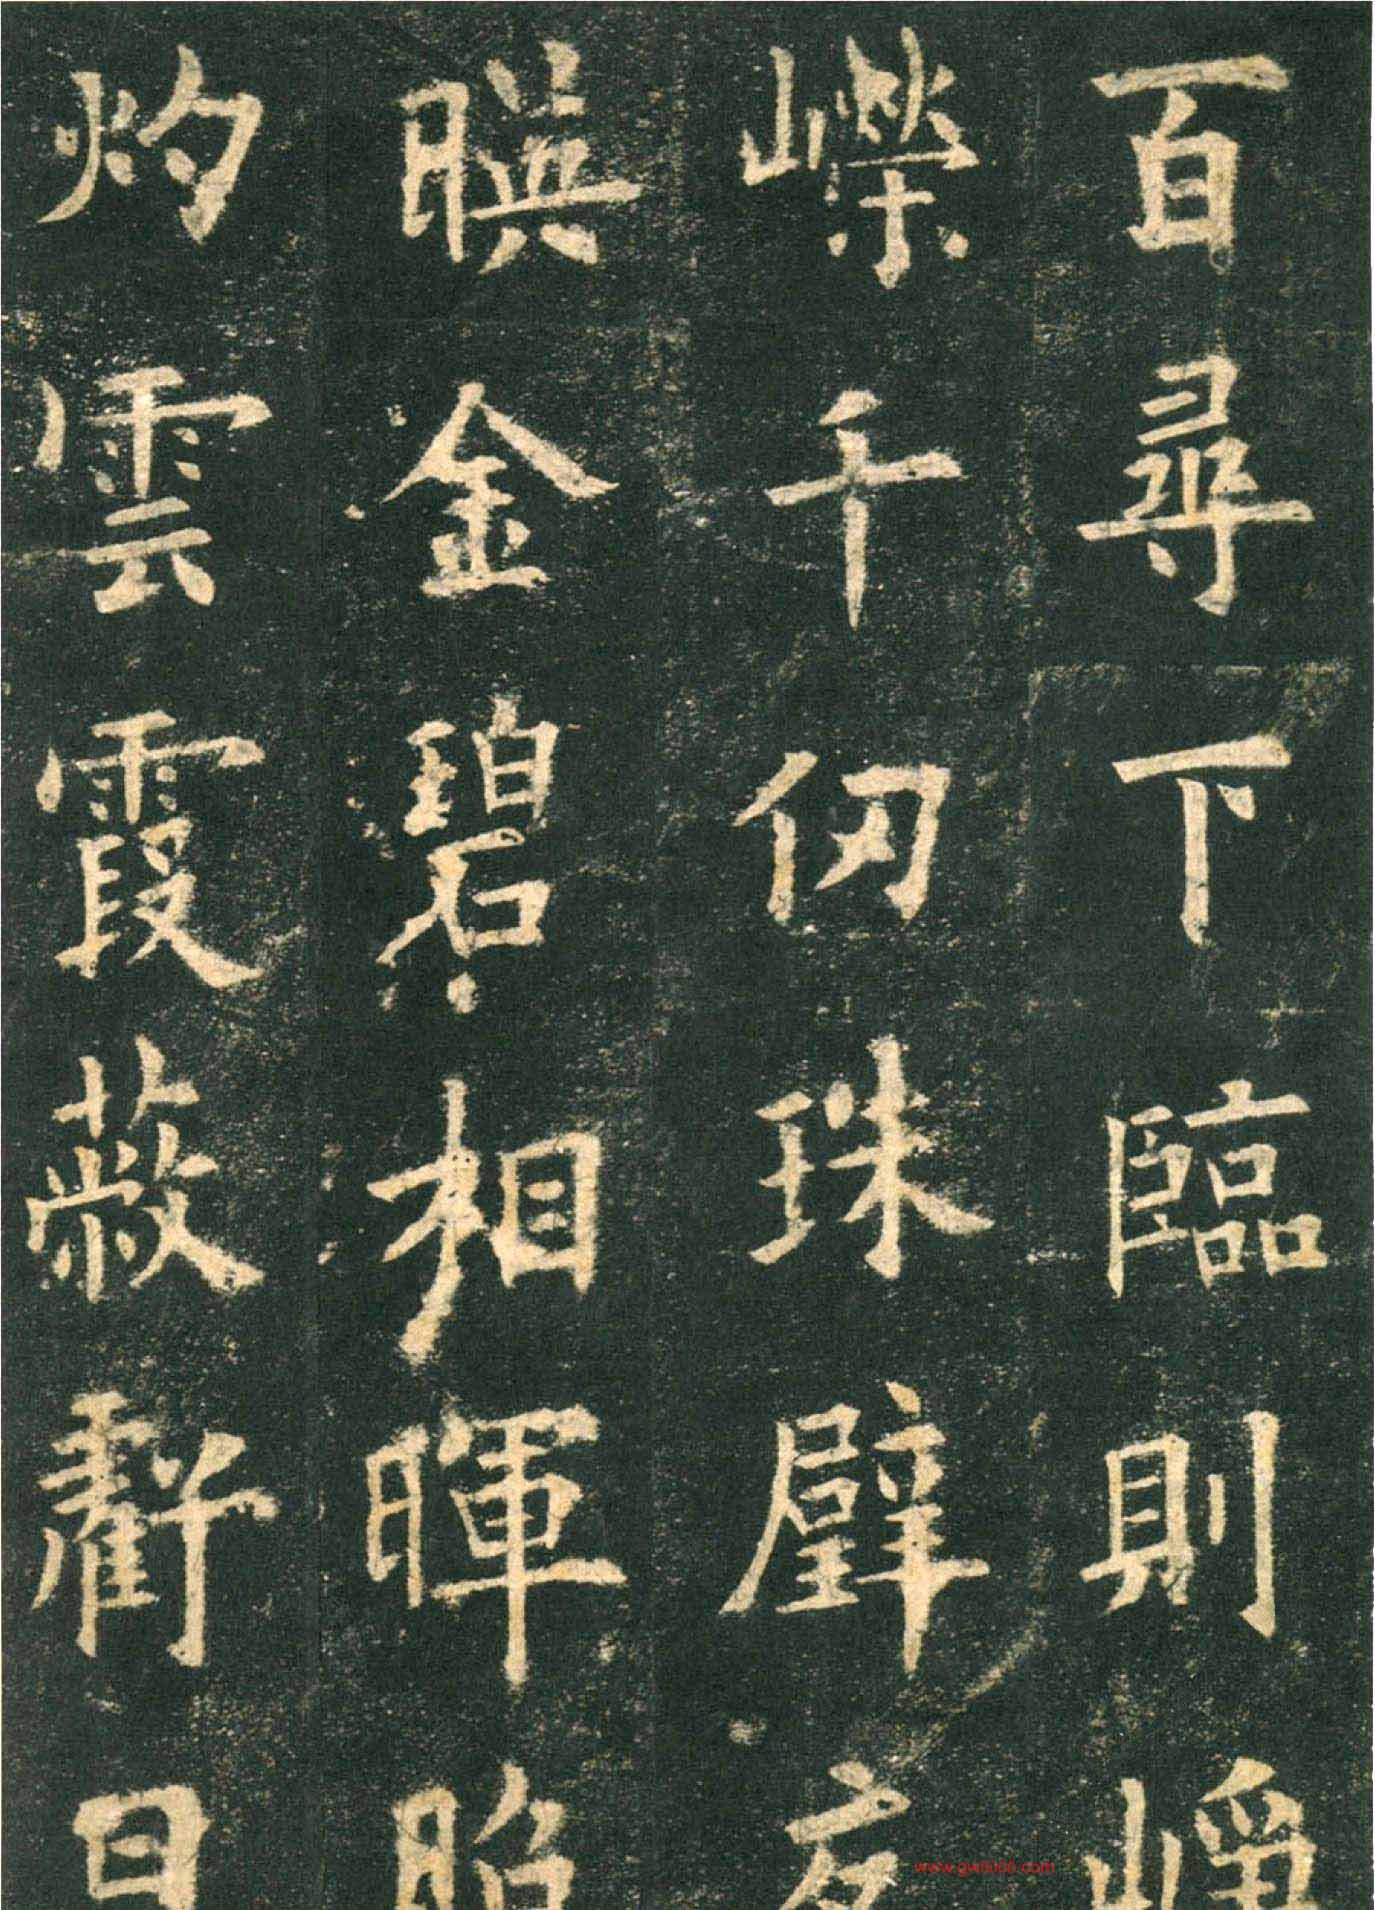 百尋下臨則崢
嶸千仞珠璧交
暎金碧相暉照
灼雲霞蔽虧日
www.gw8888.com